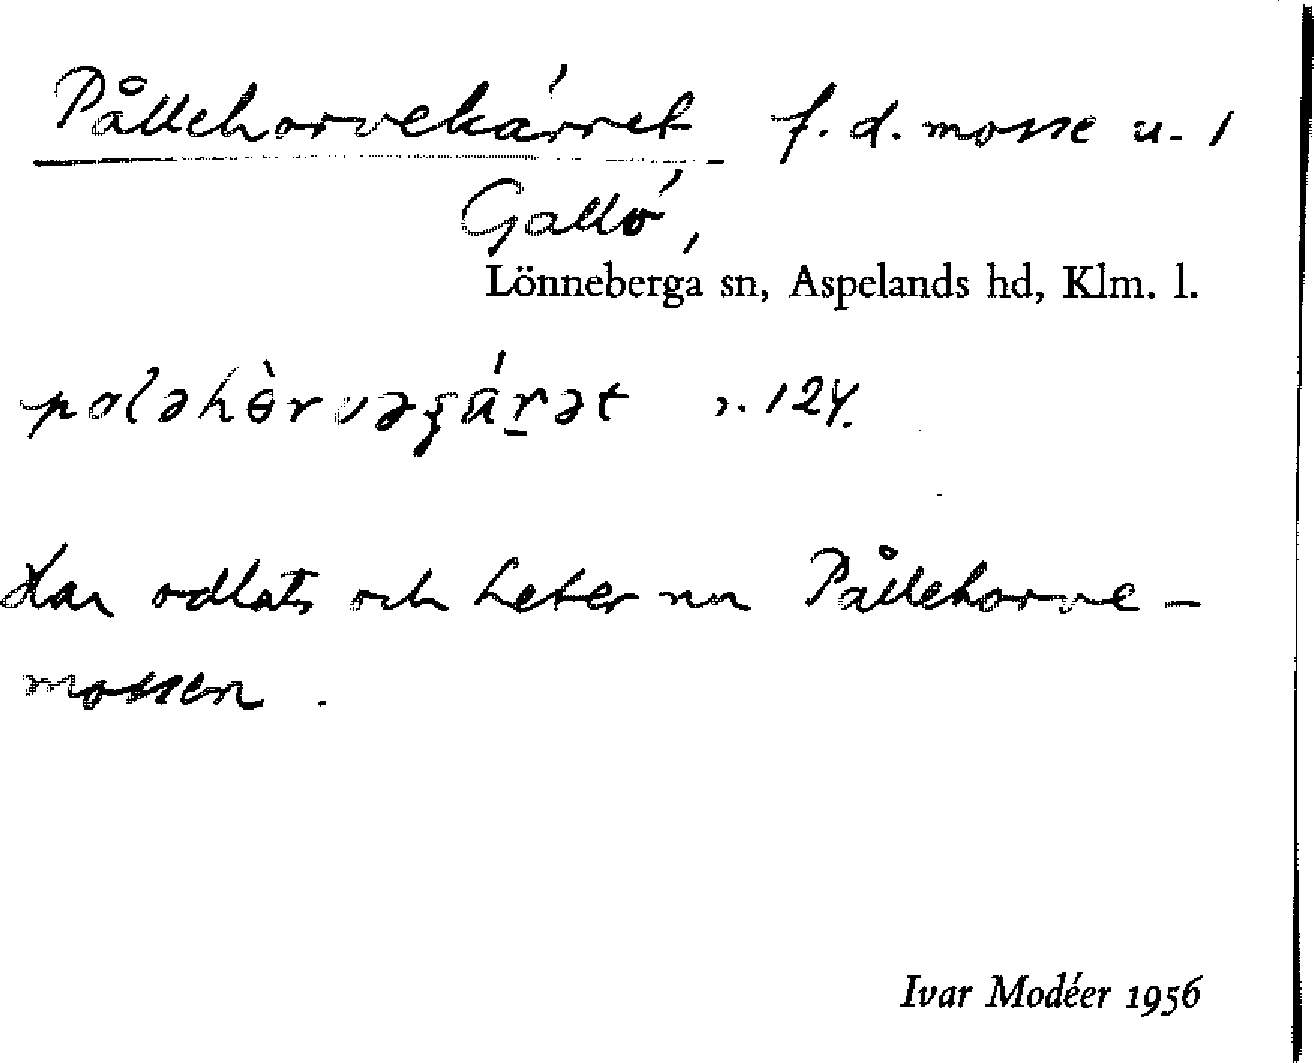 Pållehorvekärret f. d. mosse u. 1
Gallö,
Lönneberga sn, Aspelands hd, Klm. l.
paləhòrvəçä́r̲ət s. 124.
Har odlats och heter nu Pållehorve-
mossen.
Ivar Modéer 1956